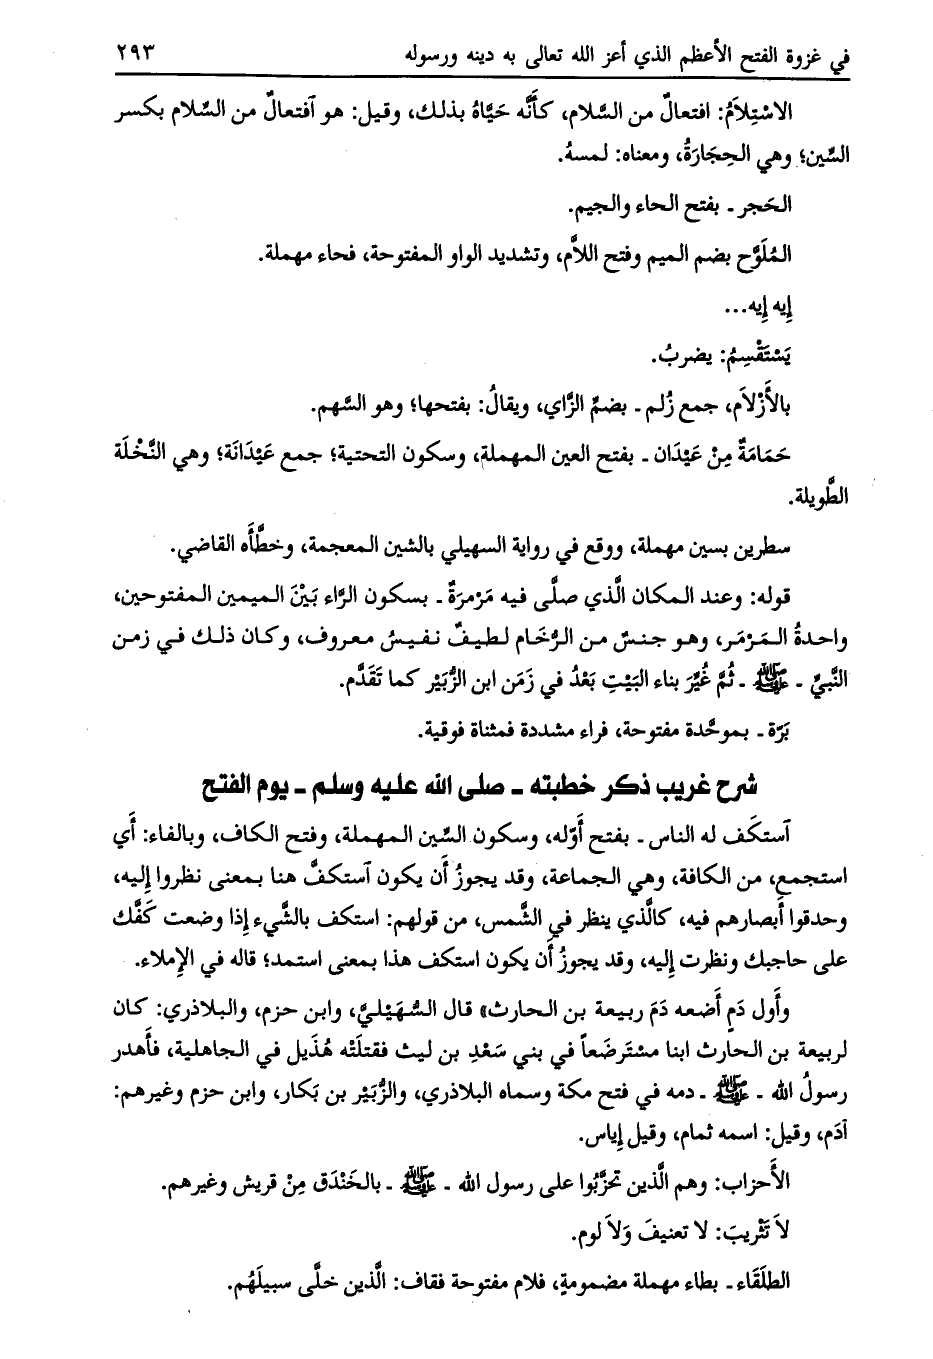 في غزوة الفتح الأعظم الذي أعز الله تعالى به دينه ورسوله ٢٩٣
الاسْتِلاَمُ: افتعالٌ من السَّلام، كأنَّه حَيَّاهُ بذلك، وقيل: هو آفتعالٌ من السِّلام بكسر
السِّين؛ وهي الحِجَارَةُ، ومعناه: لمسهُ.
الحَجر ـ بفتح الحاء والجيم.
المُلَوَّح بضم الميم وفتح اللاَّم، وتشديد الواو المفتوحة، فحاء مهملة.
إِيه إِيه...
يَسْتَقْسِمُ: يضربُ.
بالأَزْلاَم، جمع زُلم ـ بضمِّ الزَّاي، ويقالُ: بفتحها؛ وهو السَّهم.
حَمَامَةٌ مِنْ عَيْدَان ـ بفتح العين المهملة، وسكون التحتية؛ جمع عَيْدَانَة؛ وهي النَّخْلَة
الطَّويلة.
سطرين بسين مهملة، ووقع في رواية السهيلي بالشين المعجمة، وخطَّأه القاضي.
قوله: وعند المكان الَّذي صلَّى فيه مَرْمرَةٌ ـ بسكون الرَّاء بَيْنَ الميمين المفتوحين،
واحدةُ المَرْمَر، وهو جنسٌ من الرُّخَام لطيفٌ نفيسٌ معروف، وكان ذلك في زمن
النَّبيِّ ـ ﷺ ـ ثُمَّ غُيِّرَ بناء البَيْتِ بَعْدُ في زَمَن ابن الزُّبَيْر كما تَقَدَّم.
بَرَّة ـ بموحَّدة مفتوحة، فراء مشددة فمثناة فوقية.
شرح غريب ذكر خطبته ـ صلى الله عليه وسلم ـ يوم الفتح
آستكَف له الناس ـ بفتح أَوّله، وسكون السِّين المهملة، وفتح الكاف، وبالفاء: أَي
استجمع، من الكافة، وهي الجماعة، وقد يجوزُ أَن يكون آستكفَّ هنا بمعنى نظروا إِليه،
وحدقوا أَبصارهم فيه، كالَّذي ينظر في الشَّمس، من قولهم: استكف بالشَّيء إِذا وضعت كَفَّك
على حاجبك ونظرت إِليه، وقد يجوزُ أَن يكون استكف هذا بمعنى استمد؛ قاله في الإِملاء.
وأَول دَمٍ أَضعه دَمَ ربيعة بن الحارث» قال السُّهَيْليَّ، وابن حزم، والبلاذري: كان
لربيعة بن الحارث ابنا مسْتَرضَعاً في بني سَعْدِ بن ليث فقتلَتْه هُذَيل في الجاهلية، فأَهدر
رسولُ الله ـ ﷺ ـ دمه في فتح مكة وسماه البلاذري، والزُّبَيْر بن بَكار، وابن حزم وغيرهم:
آدَم، وقيل: اسمه ثمام، وقيل إِياس.
الأَحزاب: وهم الَّذين تحزَّبُوا على رسول الله ـ ﷺ ـ بالخَنْدَق مِنْ قريش وغيرهم.
لاَ تَثْرِيبَ: لا تعنيفَ وَلاَ لوم.
الطلَقَاء ـ بطاء مهملة مضمومةٍ، فلام مفتوحة فقاف: الَّذين خلَّى سبيلَهُم.